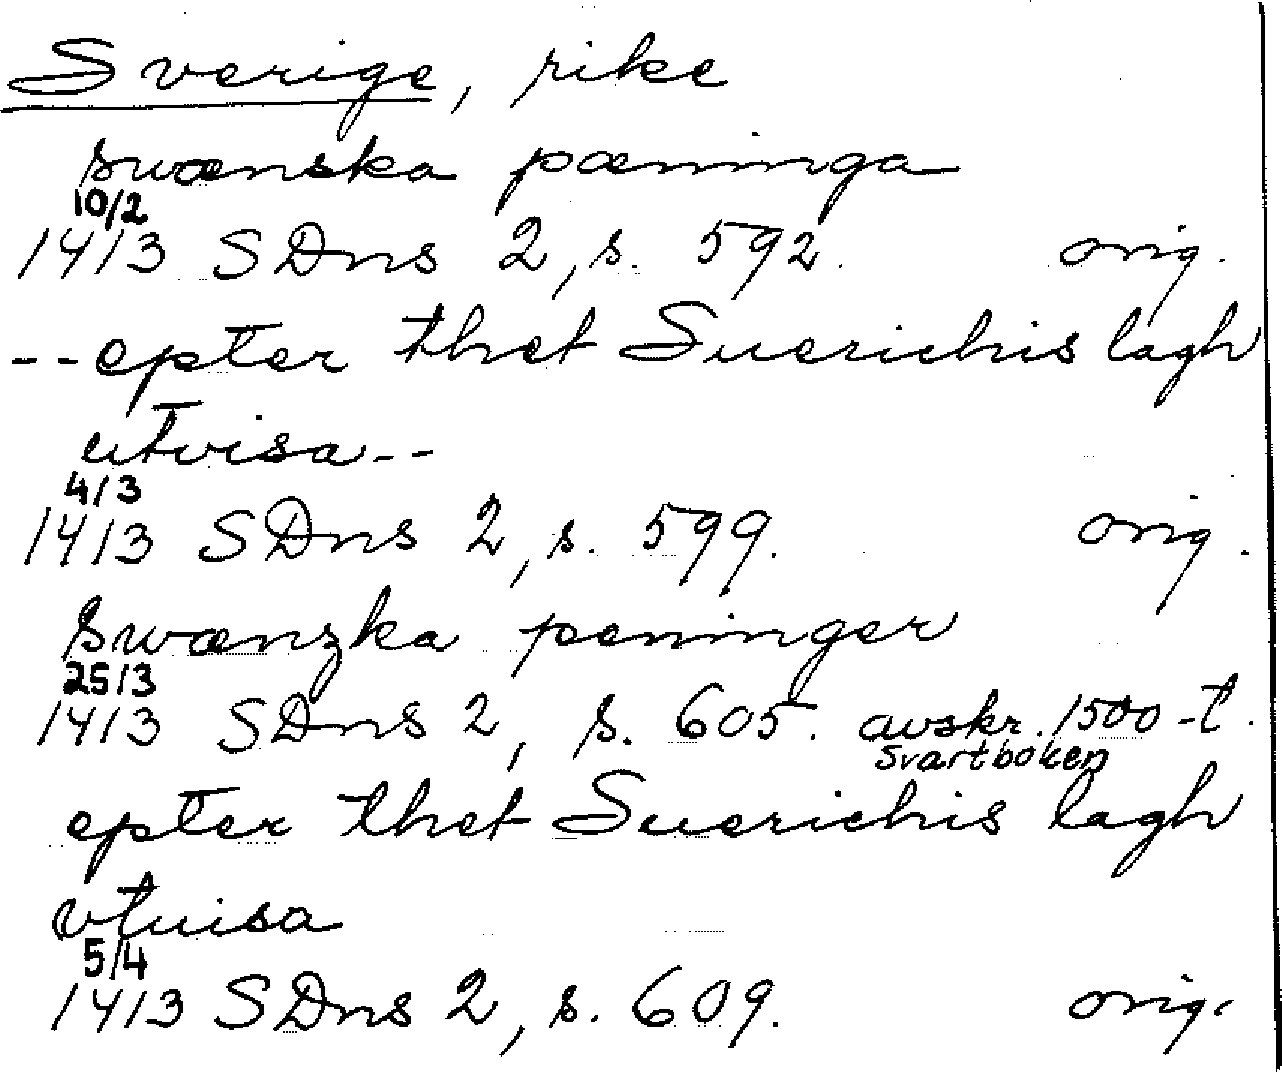 Sverige, rike
swænska pæninga
10/2
1413 SDns 2, s. 592. orig.
--epter thet Suerichis lagh
utvisa--
4/3
1413 SDns 2, s. 599. orig.
Swænzka peninger
25/3
1413 SDns 2, s. 605. avskr. 1500-t.
Svartboken
epter thet Suerichis lagh
vtuisa
5/4
1413 SDns 2, s. 609. orig.